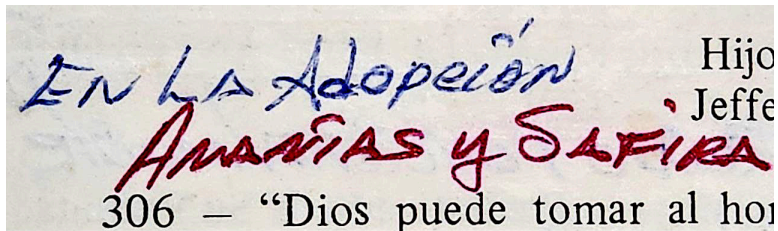 EN LA Adopción
Hijo
Jeffe
ANANÍAS y SAFIRA
306 – “Dios puede tomar al hor